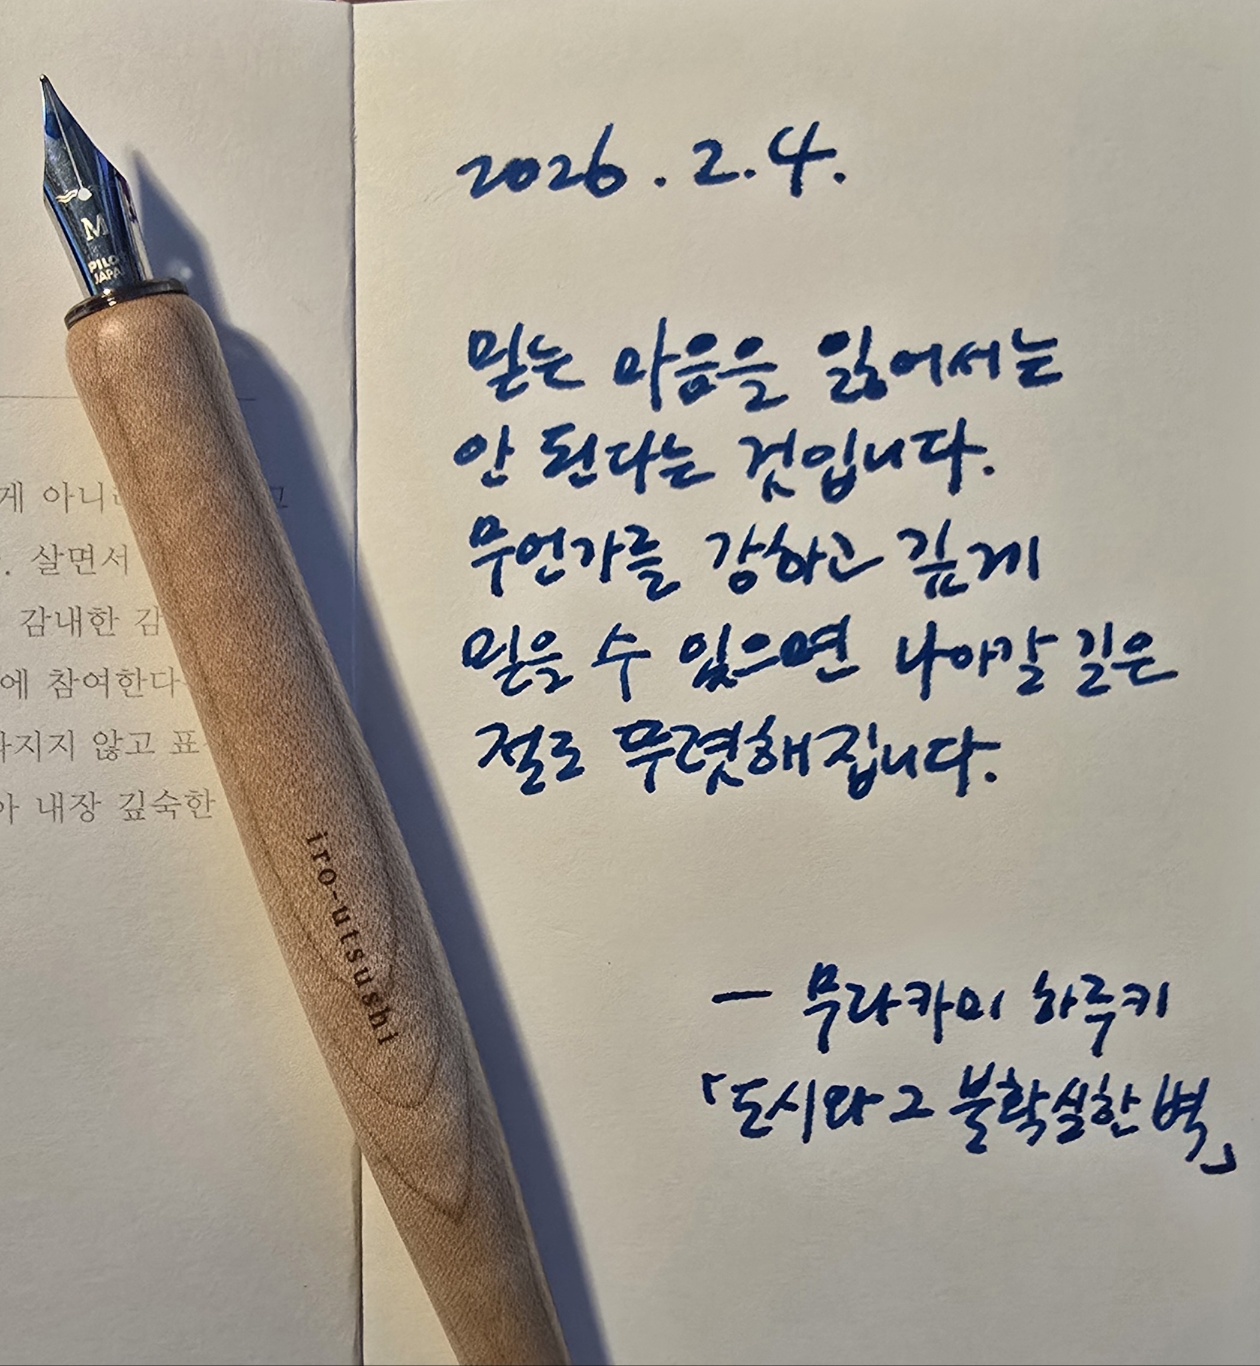 2026. 2. 4.
믿는 마음을 잃어서는
안 된다는 것입니다.
무언가를 강하고 깊게
믿을 수 있으면 나아갈 길은
절로 뚜렷해집니다.
— 무라카미 하루키
「도시와 그 불확실한 벽」
M
PILOT
JAPAN
iro-utsushi
게 아니
고
. 살면서
감내한 감
에 참여한다
지지 않고 표
아 내장 깊숙한